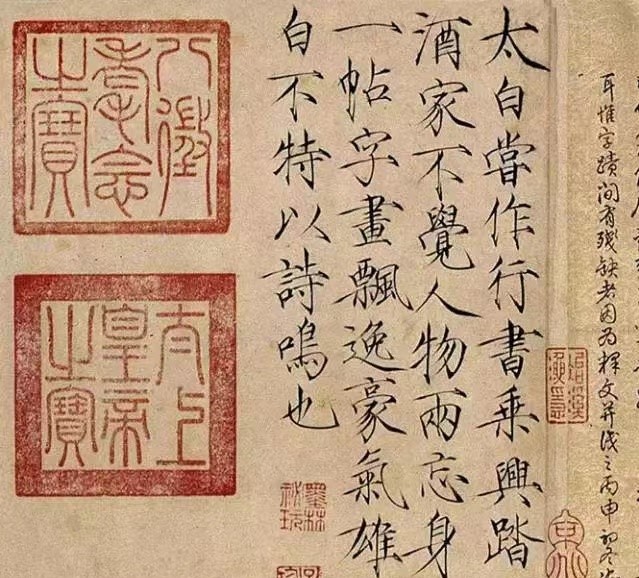 耳惟字蹟間有殘缺者因为釋文并識之丙申初冬
太白嘗作行書乘興踏
酒家不覺人物兩忘身
一帖字畫飄逸豪氣雄
白不特以詩鳴也
墨林秘玩
八徵耄念之寶
太上皇帝之寶